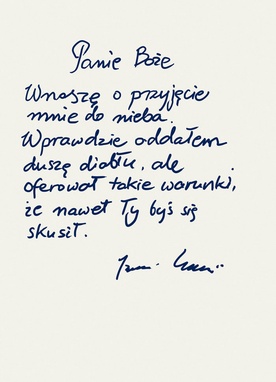 Panie Boże
Wnoszę o przyjęcie
mnie do nieba.
Wprawdzie oddałem
duszę diabłu, ale
oferował takie warunki,
że nawet Ty byś się
skusił.